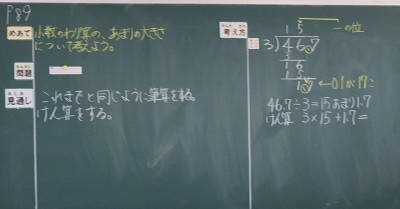 P89
めあて 小数のわり算の、あまりの大きさ
について考えよう。
問題
見通し これまでと同じように筆算をする。
けん算をする。
考え方
15 一の位
3)46.7
3
16
15
1.7 ←0.1が17こ
46.7÷3=15あまり1.7
けん算 3×15+1.7=